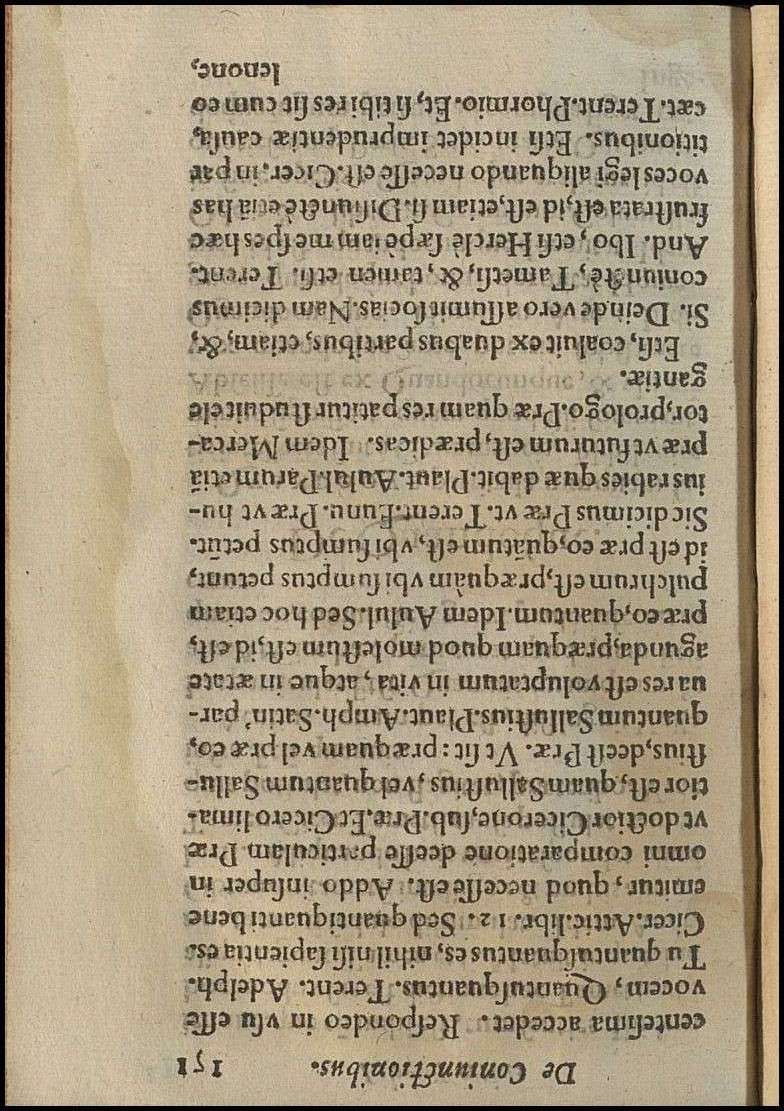 De Coniunctionibus. 151
centesima accedet. Respondeo in vsu esse
vocem, Quantusquantus. Terent. Adelph.
Tu quantusquantus es, nihil nisi sapientia es.
Cicer. Attic. libr. 12. Sed quantiquanti bene
emitur, quod necesse est. Addo insuper in
omni comparatione deesse particulam Præ
vt doctior Cicerone, sub. Præ. Et Cicero lima-
tior est, quam Sallustius, vel quantum Sallu-
stius, deest Præ. Vt sit: præquam vel præ eo,
quantum Sallustius. Plaut. Amph. Satin' par-
ua res est voluptatum in vita, atque in ætate
agunda, præquam quod molestum est, id est,
præ eo, quantum. Idem Aulul. Sed hoc etiam
pulchrum est, præquàm vbi sumptus petunt,
id est præ eo, quãtum est, vbi sumptus petũt.
Sic dicimus Præ vt. Terent. Eunu. Præ vt hu-
ius rabies quæ dabit. Plaut. Aulul. Parum etiã
præ vt futurum est, prædicas. Idem Merca-
tor, prologo. Præ quam res patitur studuit ele
gantiæ.
Etsi, coaluit ex duabus partibus, etiam, &,
Si. Deinde vero assumit socias. Nam dicimus
coniunctè, Tametsi, &, tamen etsi. Terent.
And. Ibo, etsi Herclè sæpè iam me spes hæc
frustrata est, id est, etiam si. Disiunctè etiã has
voces legi aliquando necesse est. Cicer. in par
titionibus. Etsi incidet imprudentiæ causa,
cæt. Terent. Phormio. Et, si tibi res sit cum eo
lenone,